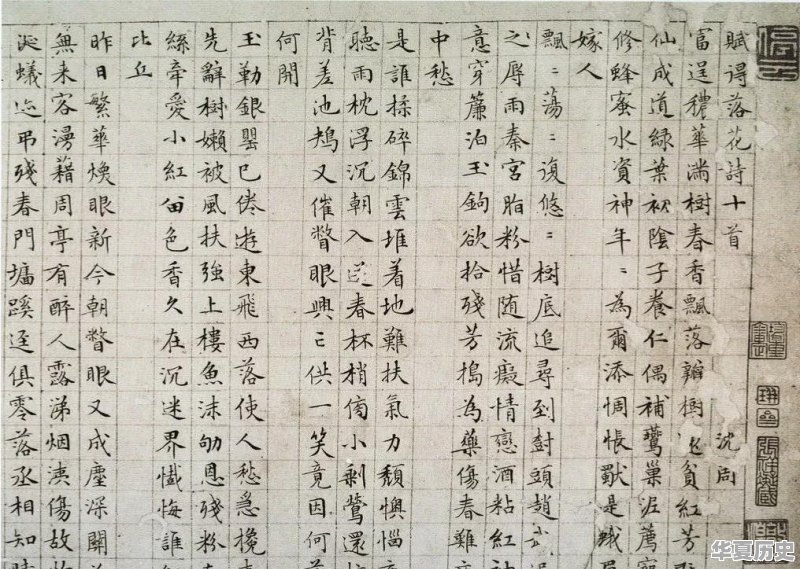 賦得落花詩十首
沈周
富逞穠華滿樹春香飄落瓣樹還貧紅芳
仙成道綠葉初陰子養仁偶補鶯巢泥薦
修蜂蜜水資神年〻為爾添惆悵獨是蛾眉
嫁人
飄〻蕩〻復悠〻樹底追尋到樹頭趙武
之辱雨秦宮脂粉惜随流癡情戀酒粘紅
意穿簾泊玉鉤欲拾殘芳搗為藥傷春難
中愁
是誰揉碎錦雲堆着地難扶氣力頹懊惱
聽雨枕浮沉朝入送春杯梢傍小剩鶯還
背差池鴆又催瞥眼興亡供一笑竟因何
何開
玉勒銀罌已倦遊東飛西落使人愁急攙
先辭樹嬾被風扶強上樓魚沫劬恩殘粉
絲牽愛小紅留色香久在沉迷界懺悔誰
比丘
昨日繁華煥眼新今朝瞥眼又成塵深關
無來客漫藉周亭有醉人露涕烟洟傷故
涎蟻迹弔殘春門牆蹊逕俱零落丞相知
华夏历史